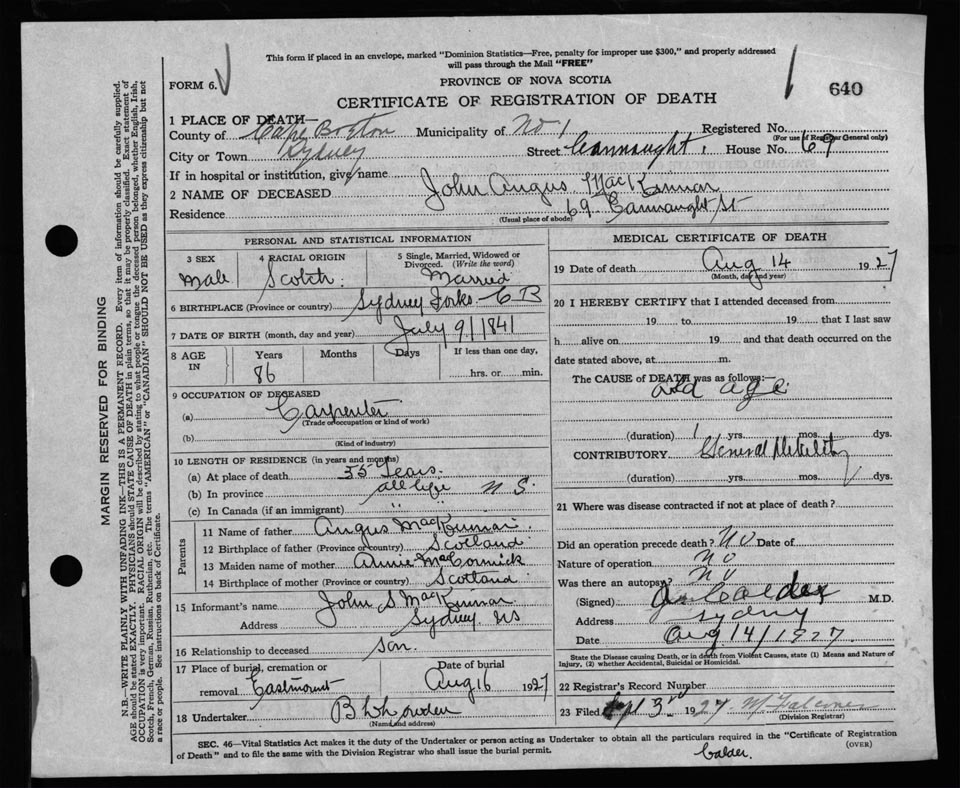 This form if placed in an envelope, marked "Dominion Statistics—Free, penalty for improper use $300," and properly addressed
will pass through the Mail "FREE"
FORM 6.
PROVINCE OF NOVA SCOTIA
640
CERTIFICATE OF REGISTRATION OF DEATH
1 PLACE OF DEATH—
County of Cape Breton Municipality of No 1 Registered No.
(For use of Registrar General only)
City or Town Sydney Street Connaught, House No. 69
If in hospital or institution, give name
2 NAME OF DECEASED John Angus MacKinnon
Residence 69 Connaught St
(Usual place of abode)
PERSONAL AND STATISTICAL INFORMATION
3 SEX
male
4 RACIAL ORIGIN
Scotch.
5 Single, Married, Widowed or
Divorced. (Write the word)
Married
6 BIRTHPLACE (Province or country) Sydney Forks C B
7 DATE OF BIRTH (month, day and year) July 9/1841
8 AGE IN
Years
86
Months
Days
If less than one day,
hrs. or min.
9 OCCUPATION OF DECEASED
(a) Carpenter
(Trade or occupation or kind of work)
(b)
(Kind of industry)
10 LENGTH OF RESIDENCE (in years and months)
(a) At place of death 35 Years.
(b) In province all life N S.
(c) In Canada (if an immigrant) " "
Parents
11 Name of father Angus MacKinnon
12 Birthplace of father (Province or country) Scotland
13 Maiden name of mother Annie MacCormick
14 Birthplace of mother (Province or country) Scotland
15 Informant's name John S MacKinnon
Address Sydney. NS
16 Relationship to deceased son.
17 Place of burial, cremation or
removal Eastmount
Date of burial
Aug 16 1927
18 Undertaker
(Name and address)
MEDICAL CERTIFICATE OF DEATH
19 Date of death Aug 14 1927
(Month, day and year)
20 I HEREBY CERTIFY that I attended deceased from
19 to 19 that I last saw
h alive on 19 and that death occurred on the
date stated above, at m.
The CAUSE of DEATH was as follows:—
old age.
(duration) 1 yrs. mos. dys.
CONTRIBUTORY General Debility
(duration) yrs. mos. dys.
21 Where was disease contracted if not at place of death?
Did an operation precede death? No Date of
Nature of operation No
Was there an autopsy? No
(Signed) Calder M.D.
Address Sydney
Date Aug 14/1927.
State the Disease causing Death, or in death from Violent Causes, state (1) Means and Nature of
Injury, (2) whether Accidental, Suicidal or Homicidal.
22 Registrar's Record Number
23 Filed Sept 3rd 1927
(Division Registrar)
SEC. 46—Vital Statistics Act makes it the duty of the Undertaker or person acting as Undertaker to obtain all the particulars required in the "Certificate of Registration
of Death" and to file the same with the Division Registrar who shall issue the burial permit.
(OVER)
Calder.
MARGIN RESERVED FOR BINDING
N.B.—WRITE PLAINLY WITH UNFADING INK—THIS IS A PERMANENT RECORD. Every item of information should be carefully supplied.
AGE should be stated EXACTLY. PHYSICIANS should STATE CAUSE OF DEATH in plain terms, so that it may be properly classified. Exact statement of
OCCUPATION is very important. RACIAL ORIGIN will be described by stating to what people or tongue the deceased person belonged, whether English, Irish,
Scotch, French, German, Russian, Ruthenian, etc. The terms "AMERICAN" or "CANADIAN" SHOULD NOT BE USED as they express citizenship but not
a race or people. See instructions on back of Certificate.